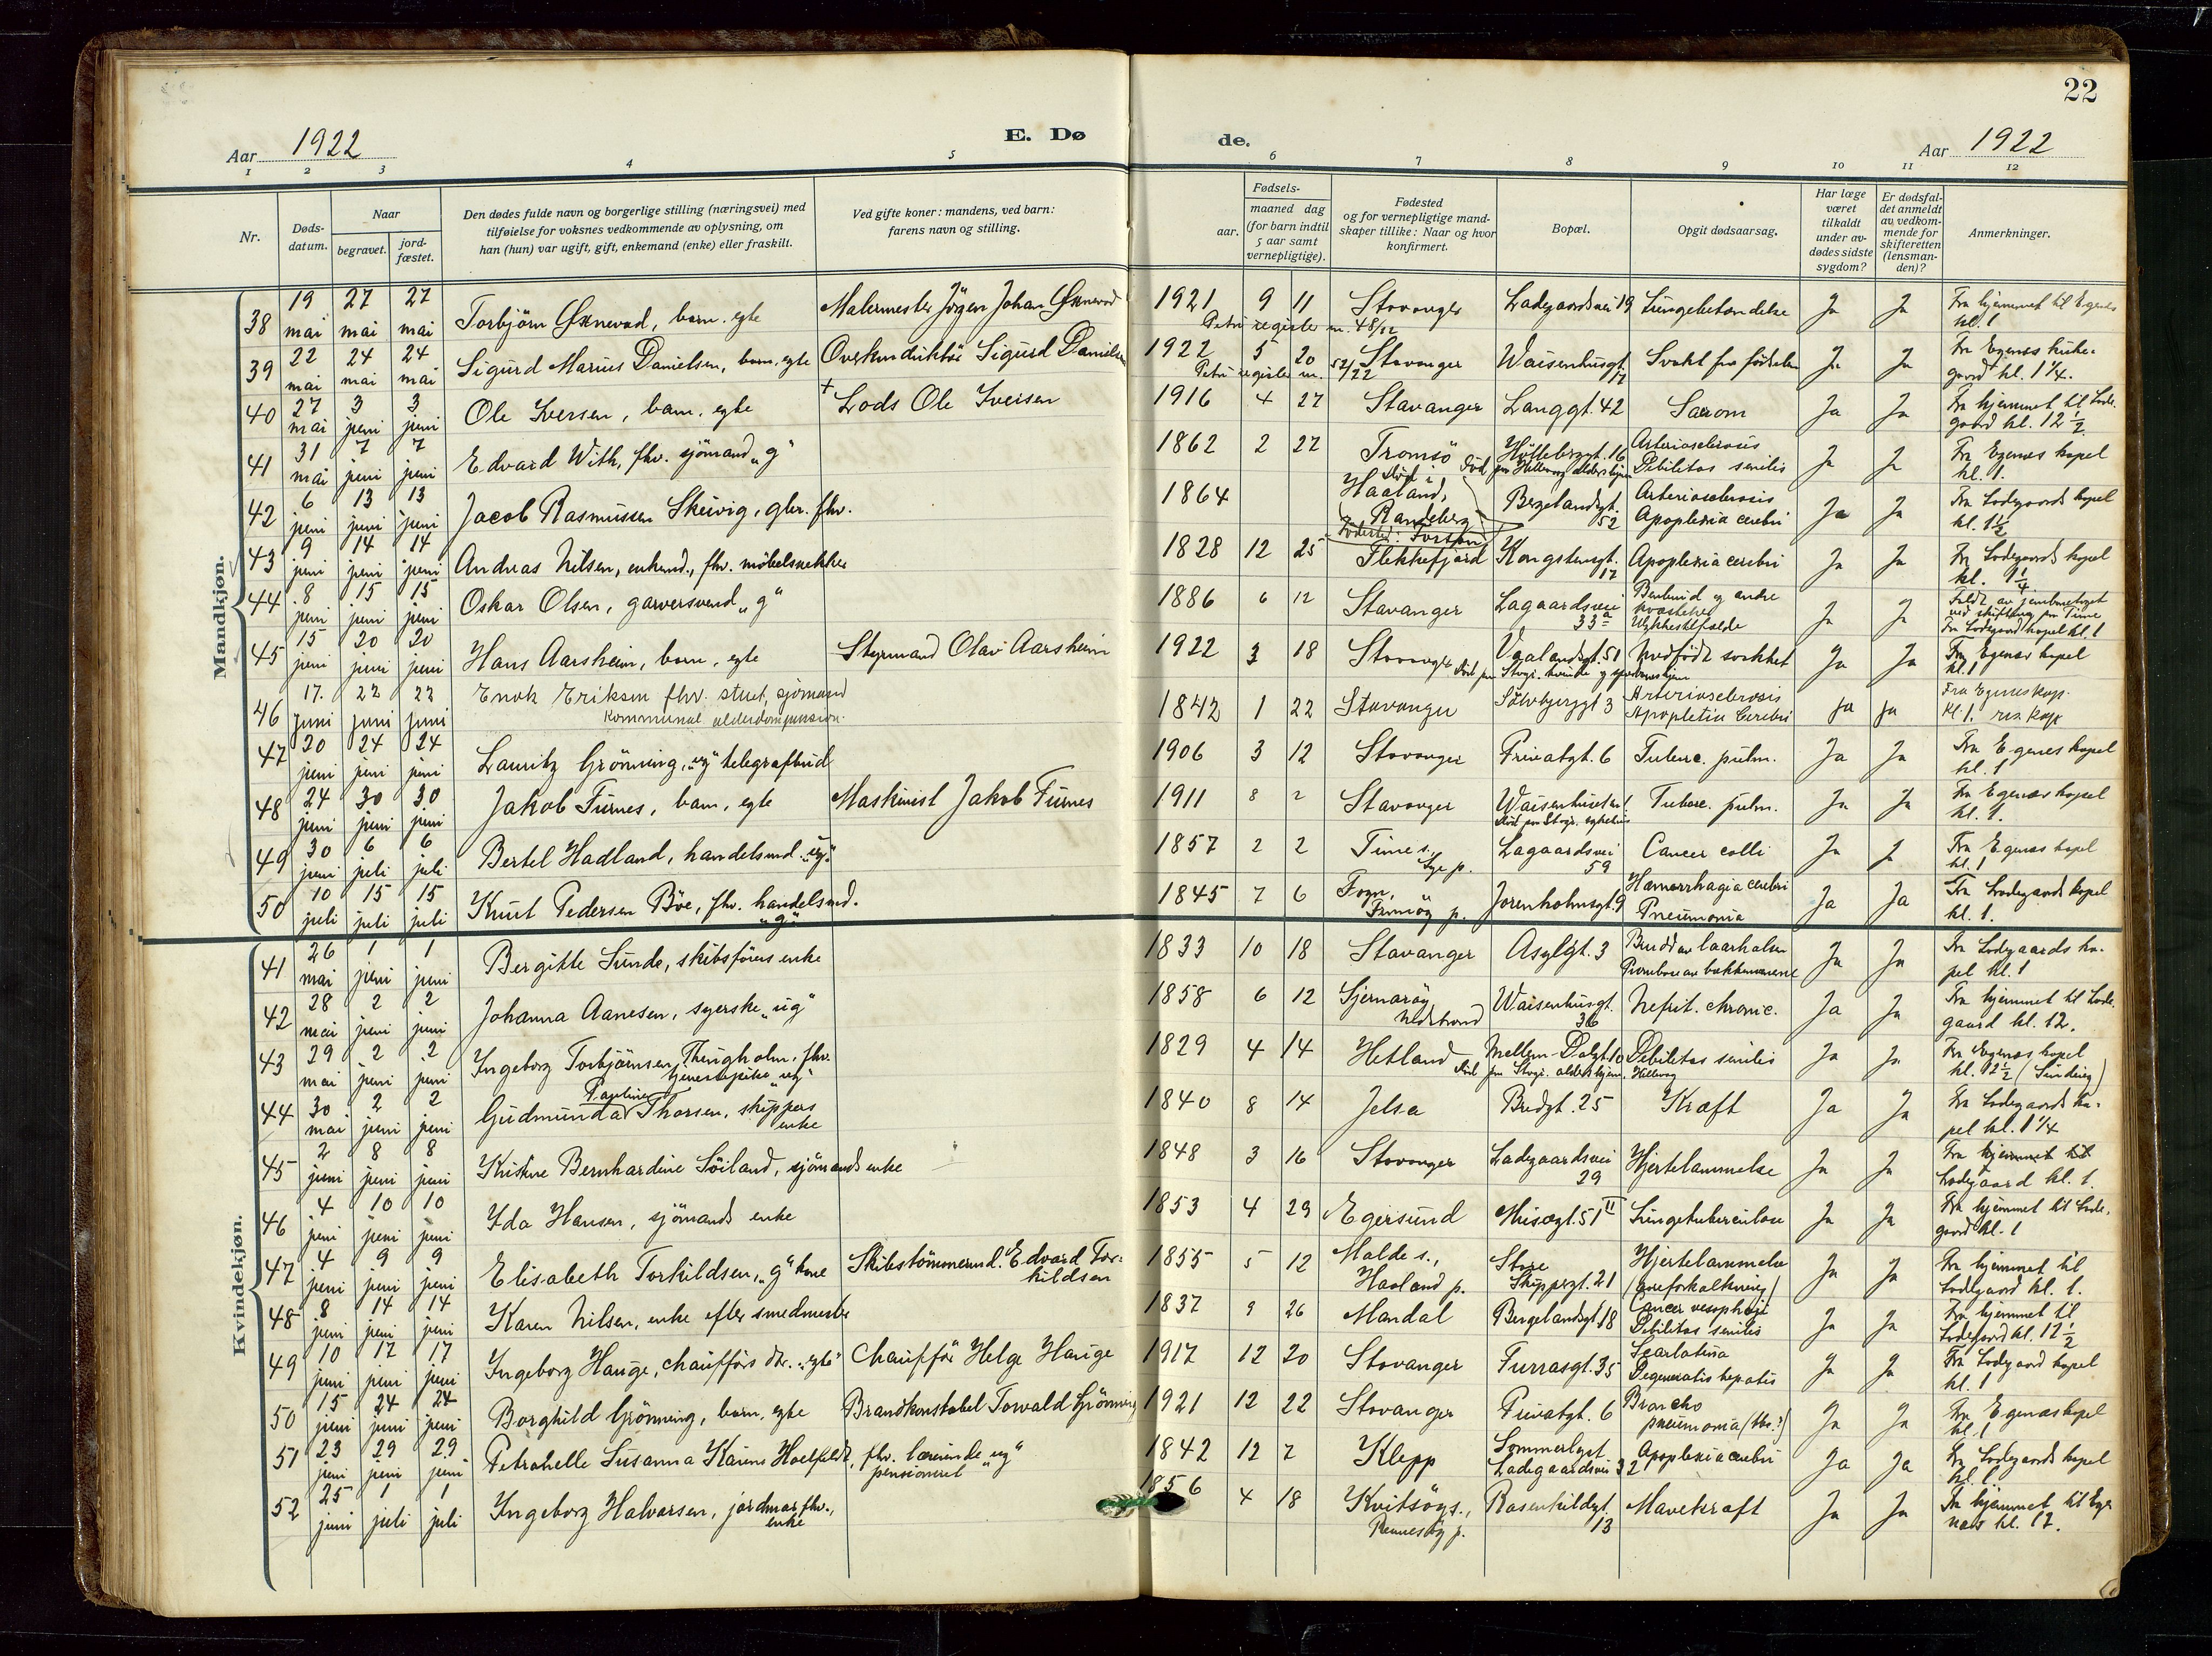 22
Aar 1922
E. Dø
de.
Aar 1922
1 2 3 4 5 6 7 8 9 10 11 12
Nr.
Døds-
datum.
Naar
begravet.
jord-
fæstet.
Den dødes fulde navn og borgerlige stilling (næringsvei) med
tilføielse for voksnes vedkommende av oplysning, om
han (hun) var ugift, gift, enkemand (enke) eller fraskilt.
Ved gifte koner: mandens, ved barn:
farens navn og stilling.
Fødsels-
aar.
maaned dag
(for barn indtil
5 aar samt
vernepligtige).
Fødested
og for vernepligtige mand-
skaper tillike: Naar og hvor
konfirmert.
Bopæl.
Opgit dødsaarsag.
Har læge
været
tilkaldt
under av-
dødes sidste
sygdom?
Er dødsfal-
det anmeldt
av vedkom-
mende for
skifteretten
(lensman-
den)?
Anmerkninger.
Mandkjøn.
38 19 mai 27 mai 27 mai Torbjörn Øknevad, barn, egte Malermester Jörgen Johan Øknevad 1921 9 11 Stavanger Ladegaardsvei 19 Lungebetændelse Ja Ja Fra hjemmet til Egenes kl. 1
Petri register nr. 48/22
39 22 mai 24 mai 24 mai Sigurd Marius Danielsen, barn, egte Overkonduktör Sigurd Danielsen 1922 5 20 Stavanger Waisenhusgt. 17 Svakt fra födselen Ja Ja Fra Egenes kirke-
gaard kl. 1 1/4.
Petri register nr. 52/22
40 27 mai 3 juni 3 juni Ole Iversen, barn, egte + Lods Ole Iversen 1916 4 27 Stavanger Langgt. 42 Sarcom Ja Ja Fra hjemmet til Lade-
gaard kl. 12 1/2
41 31 mai 7 juni 7 juni Edvard With, fhv. sjömand "g" 1862 2 22 Tromsö 16 Arteriosclerosis
Debilitas senilis Ja Ja Fra Egenes kapel
kl. 1.
42 6 juni 13 juni 13 juni Jacob Rasmussen Skeivig, gbr. fhv. 1864 Haaland, Randeberg Bergelandsgt. 52 Arteriosclerosis
Apoplexia cerebri Ja Ja Fra Ladegaards kapel
kl. 1 1/2
43 9 juni 14 juni 14 juni Andreas Nilsen, enkemd., fhv. möbelsnekker 1828 12 25 Flekkefjord Kongstensgt. 17 Apoplexia cerebri Ja Ja Fra Ladegaards kapel
kl. 9 1/4
44 8 juni 15 juni 15 juni Oskar Olsen, garversvend "g" 1886 6 12 Stavanger Lagaardsvei 33a Benbrud og andre
kvæstelser
Ulykkestilfælde Ja Ja
Fra Ladegaard kapel kl. 1
45 15 juni 20 juni 20 juni Hans Aarsheim, barn, egte Styrmand Olav Aarsheim 1922 3 18 Stavanger Vaalandsgt. 51 Medfödt svakhet Ja Ja Fra Egenes kapel
kl. 1
46 17. juni 22 juni 22 juni Enok Eriksen fhv. stuet, sjömand
kommunal alderdomspension. 1842 1 22 Stavanger Sölvbergsgt 3 Arteriosclerosis
Apopletia Cerebri ja ja Fra Egenes kap.
kl. 1. res. kap
47 20 juni 24 juni 24 juni Lauritz Grönning, "ug" telegrafbud 1906 3 12 Stavanger Privatgt. 6 Tuberc. pulm. Ja Ja Fra Egenes kapel
kl. 1
48 24 juni 30 juni 30 juni Jakob Furnes, barn, egte Maskinist Jakob Furnes 1911 8 2 Stavanger Waisenhuset
Död paa Stvgr. sykehus Tuberc. pulm. Ja Ja Fra Egenes kapel
kl. 1.
49 30 juni 6 juli 6 juli Bertel Hadland, handelsmd. "ug" 1857 2 2 Time s., Lye p. Lagaardsvei 59 Cancer colli Ja Ja Fra Egenes kapel
kl. 1
50 10 juli 15 juli 15 juli Knut Pedersen Böe, fhv. handelsmd. "g" 1845 7 6 Fogn, Finnöy p. Jorenholmsgt. 9 Hæmorrhagia cerebri
Pneumonia Ja Ja Fra Ladegaards kapel
kl. 1.
Kvindekjøn.
41 26 mai 1 juni 1 juni Bergitte Sunde, skibsförers enke 1833 10 18 Stavanger Asylgt. 3 Brudd av laarhalsen Ja Ja Fra Ladegaards ka-
pel kl. 1
42 28 mai 2 juni 2 juni Johanna Aanesen, syerske "ug" 1858 6 12 Sjernaröy Nedstrand Waisenhusgt. 36 Nefrit. chronic. Ja Ja Fra hjemmet til Lade-
gaard kl. 12.
43 29 mai 2 juni 2 juni Ingeborg Torbjörnsen Thingholm, fhv.
tjenestepike "ug" 1829 4 14 Hetland Mellem Dalgt. 10 Debilitas senilis Ja Ja Fra Egenes kapel
kl. 12 1/2 (Sinding)
Död paa Stvgr. aldershjem, Hillevaag
44 30 mai 2 juni 2 juni Gudmunda Pauline Thorsen, skippers
enke 1840 8 14 Jelsa Bredgt. 25 Kræft Ja Ja Fra Ladegaards ka-
pel kl. 1 1/4
45 2 juni 8 juni 8 juni Kristine Bernhardine Söiland, sjömands enke 1848 3 16 Stavanger Ladegaardsvei 29 Hjertelammelse Ja Ja Fra hjemmet til
Ladegaard kl. 1.
46 4 juni 10 juni 10 juni Ida Hansen, sjömands enke 1853 4 29 Egersund Musægt. 51 II Lungetuberculose Ja Ja Fra hjemmet til Lade-
gaard kl. 1
47 4 juni 9 juni 9 juni Elisabeth Torkildsen, "g" kone Skibstömmermd. Edvard Tor-
kildsen 1855 5 12 Malde s.,
Haaland p. Store
Skippergt. 21 Hjertelammelse
(aareforkalkning) Ja Ja Fra hjemmet til
Ladegaard kl. 1.
48 8 juni 14 juni 14 juni Karen Nilsen, enke efter smedmester 1837 9 26 Mandal Bergelandsgt. 18 Cancer oesophagi
Debilitas senilis Ja Ja Fra hjemmet til
Ladegaard kl. 12 1/2
49 10 juni 17 juni 17 juni Ingeborg Hauge, chaufförs dtr. "egte" Chaufför Helge Hauge 1917 12 20 Stavanger Furrasgt. 35 Scarlatina
Degeneratis hepatis Ja Ja Fra Ladegaard kapel
kl. 1
50 15 juni 24 juni 24 juni Borghild Grönning, barn, egte Brandkonstabel Torvald Grönning 1921 12 22 Stavanger Privatgt. 6 Broncho
pneumonia (tbc.?) Ja Ja Fra Egenes kapel
kl. 1
51 23 juni 29 juni 29 juni Petronelle Susanna Karine Hoelfeldt, fhv. lærerinde "ug"
pensioneret 1842 12 7 Klepp Sommerlyst
Ladegaardsvei 32 Apoplexia cerebri Ja Ja Fra Ladegaards kapel
kl. 1
52 25 juni 1 juli 1 juli Ingeborg Halvorsen, jordmor fhv.,
enke 1856 4 18 Kvitsöy s.,
Rennesöy p. Rosenkildegt. 13 Mavekræft Ja Ja Fra hjemmet til Ege-
nes kl. 12.